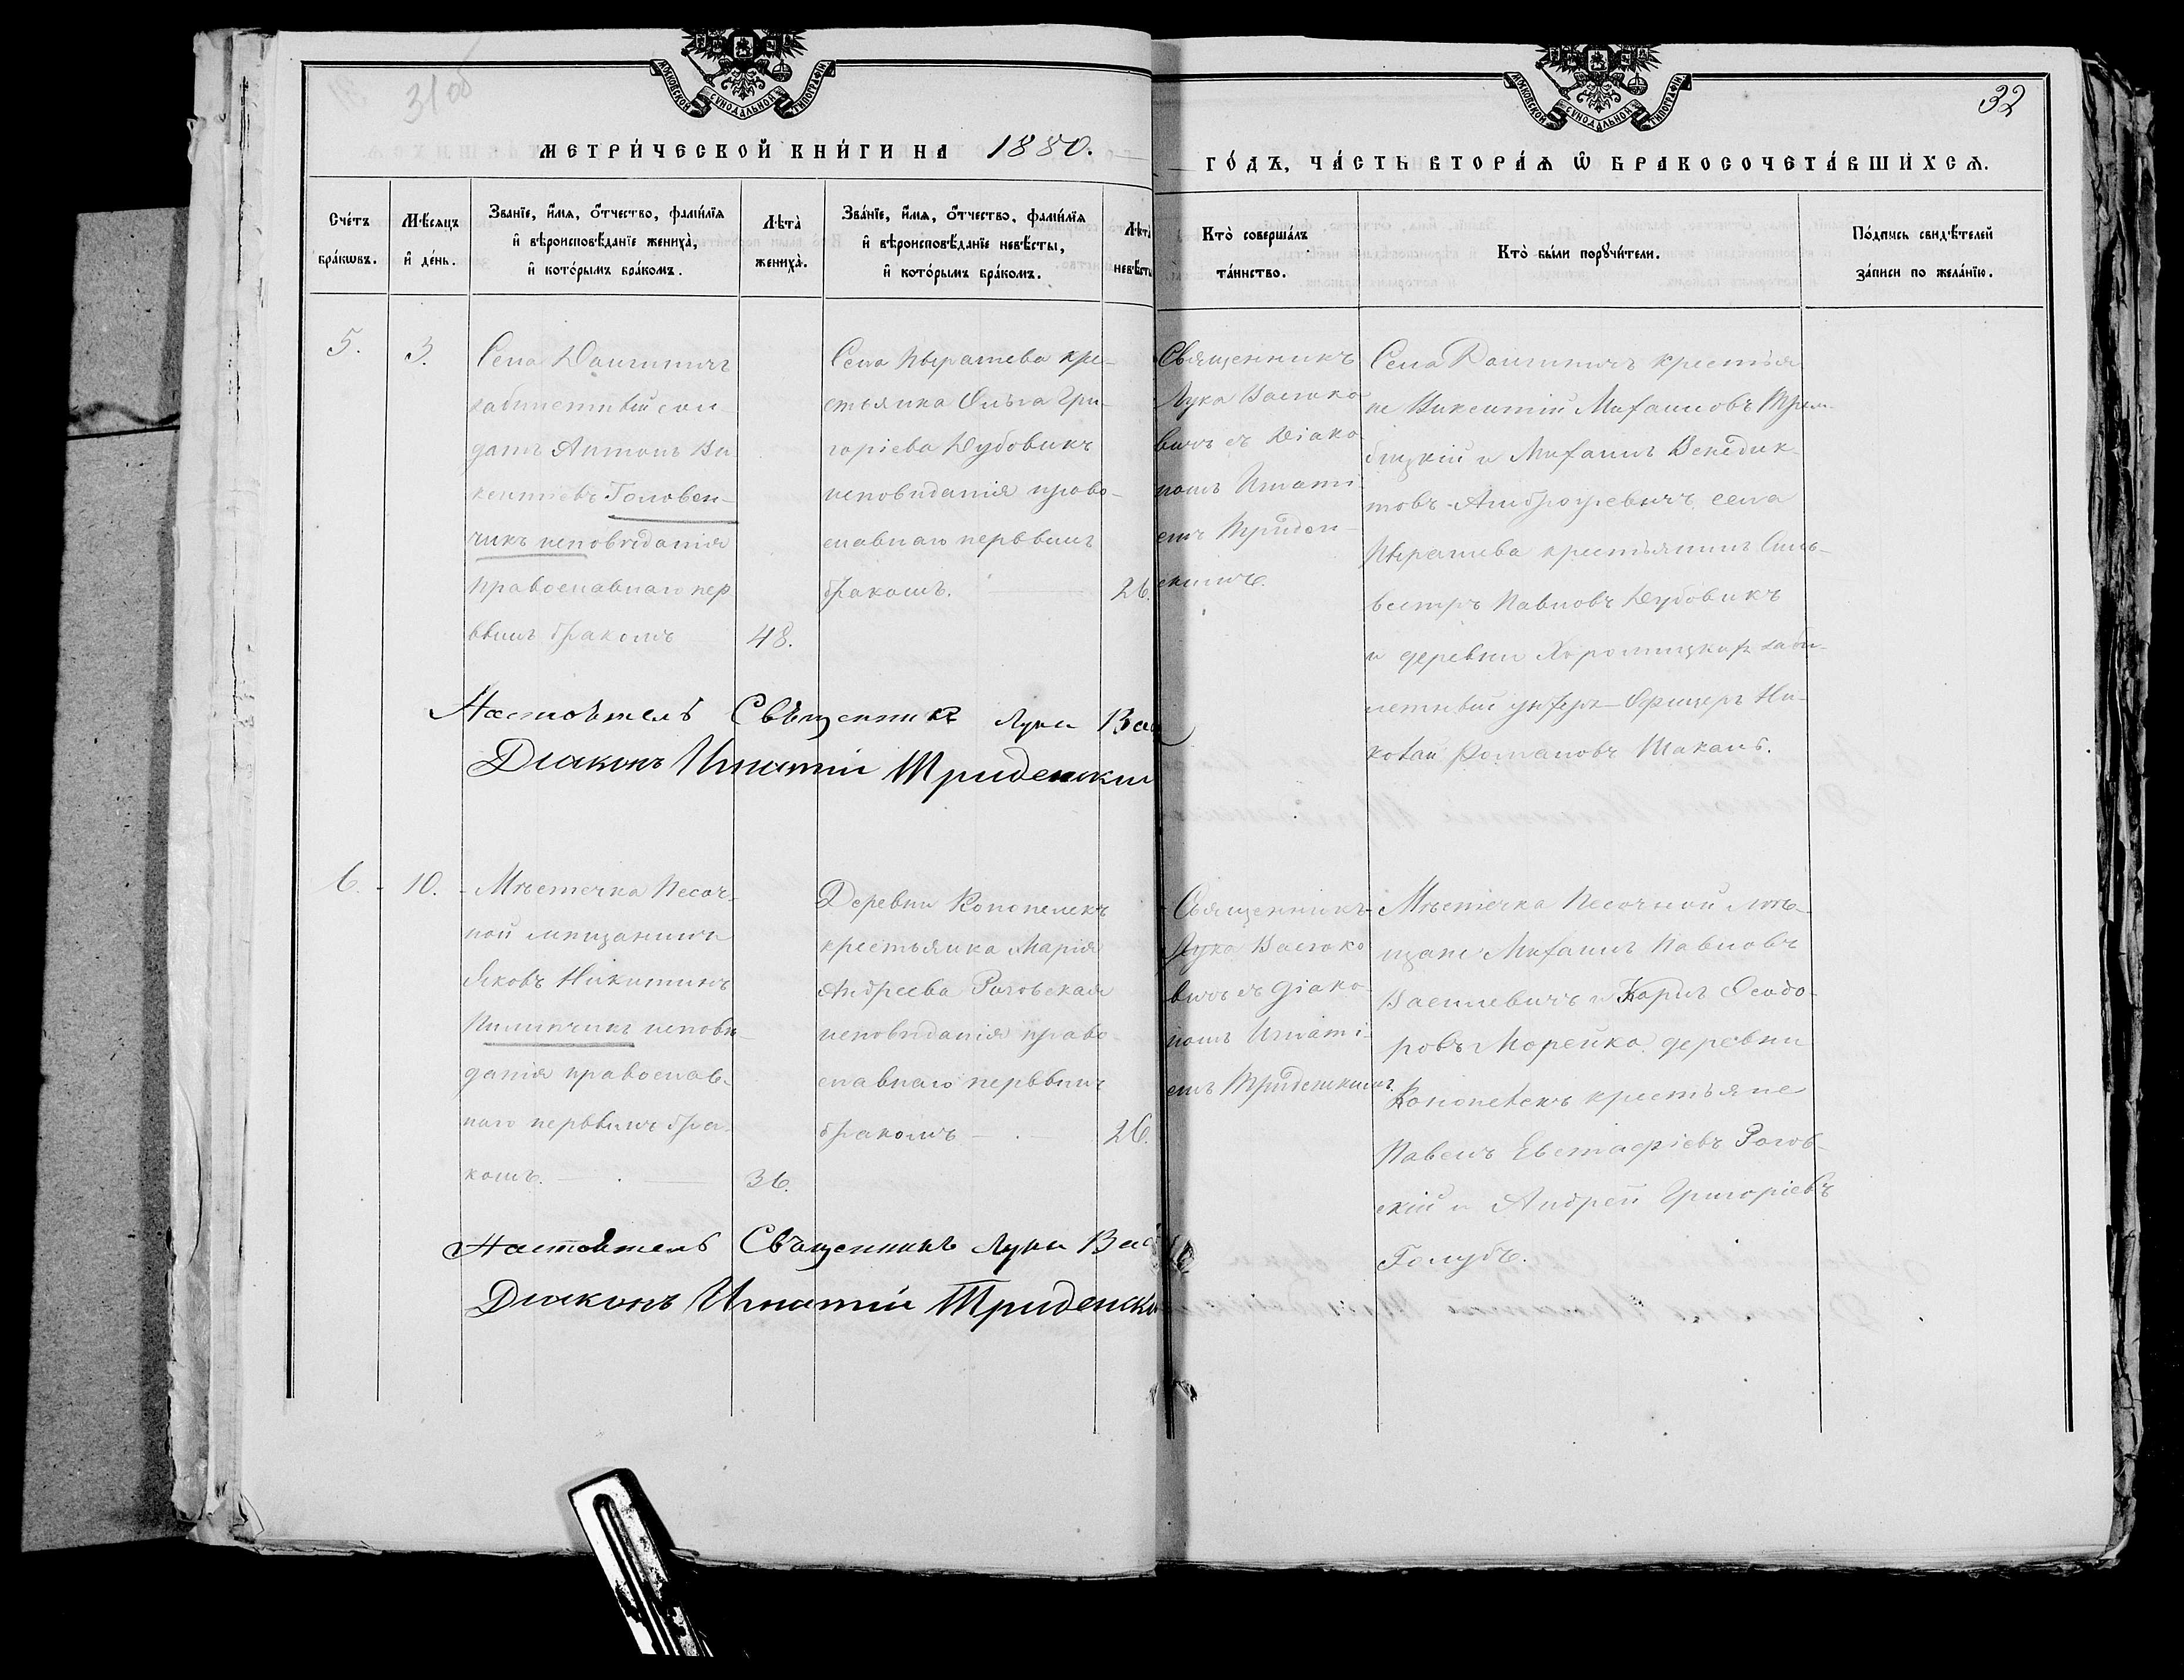 31 об
32
МОСКОВСКОЙ СѴНОДАЛЬНОЙ ТИПОГРАФІИ
МОСКОВСКОЙ СѴНОДАЛЬНОЙ ТИПОГРАФІИ
МЕТРИ́ЧЕСКОЙ КНИ́ГИ НА 1880.
ГО́ДЪ, ЧА́СТЬ ВТОРА́Ѧ Ѽ БРАКОСОЧЕТА́ВШИХСѦ.
Сче́тъ
бра́кѡвъ.
Мѣ́сяцъ
и҆ де́нь.
Зва́нїе, и҆́мѧ, ѻ҆́тчество, фамѝлїѧ
и҆ вѣроисповѣ́данїе жениха̀,
и҆ кото́рымъ бра́комъ.
Лѣ́та̀
жениха̀.
Зва́нїе, и҆́мѧ, ѻ҆́тчество, фамѝлїѧ
и҆ вѣроисповѣ́данїе невѣ́сты,
и҆ кото́рымъ бра́комъ.
Лѣ́та̀
невѣ́сты
Кто̀ соверша́лъ
та́инство.
Кто̀ бы́ли порꙋчи́тели.
По́дпись свидѣ́телей
за́писи по жела́нїю.
5.
3.
Села
Антонъ Ви-
кентіевъ Головен-
чикъ исповѣданія
православнаго пер
вымъ бракомъ
48.
Села кре-
стьянка Ольга Гри-
горіева Дубовикъ
исповѣданія право-
славнаго первымъ
бракомъ.
26.
Священникъ
Лука Васюко
вичъ съ Діако
номъ Игнаті
емъ Триден-
скимъ.
Села крестья
не Викентій Михаиловъ
и Михаилъ Венедик-
товъ села
крестьянинъ Силь-
вестръ Павловъ Дубовикъ
и деревни
унтеръ-Офицеръ Ни-
колай Романовъ
Настоятель Священникъ Лука Вас
Діаконъ Игнатій Триденскій
6.
10.
Мѣстечка Песоч-
ной мѣщанинъ
Яковъ Никитинъ
Пилипчикъ исповѣ
данія православ-
наго первымъ бра-
комъ.
36.
Деревни Конопелекъ
крестьянка Марія
Андреева Роговская
исповѣданія право-
славнаго первымъ
бракомъ
26.
Священникъ
Лука Васюко
вичъ съ діако
номъ Игнаті-
емъ Триденскимъ.
Мѣстечка Песочной мѣ-
щане Михаилъ Павловъ
Василевичъ и Карлъ Ѳеодо-
ровъ Морейко деревни
Конопелекъ крестьяне
Павелъ Евстафіевъ Рогов-
скій и Андрей Григоріевъ
Голубъ.
Настоятель Священникъ Лука Вас
Діаконъ Игнатій Триденскі